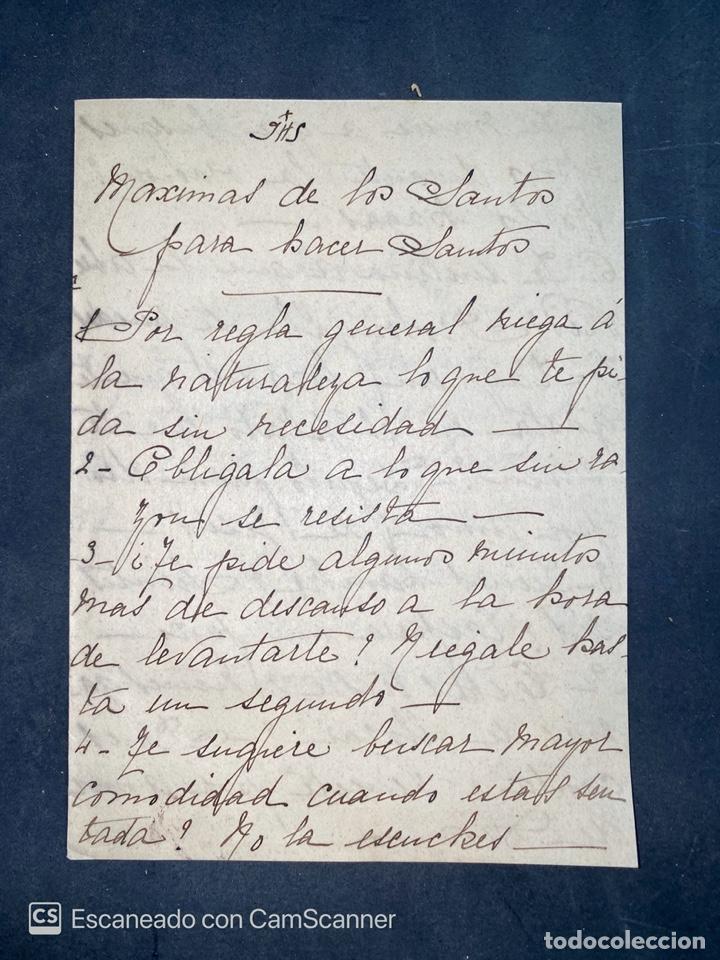 JHS
Maximas de los Santos
para hacer Santos
1 Por regla general niega á
la naturaleza lo que te pi-
da sin necesidad —
2- Obligala a lo que sin ra-
zon se resista —
3- ¿Te pide algunos minutos
mas de descanso a la hora
de levantarte? Niegale has-
ta un segundo —
4- Te sugiere buscar mayor
comodidad cuando estas sen
tada? No la escuches —
CS Escaneado con CamScanner
todocoleccion